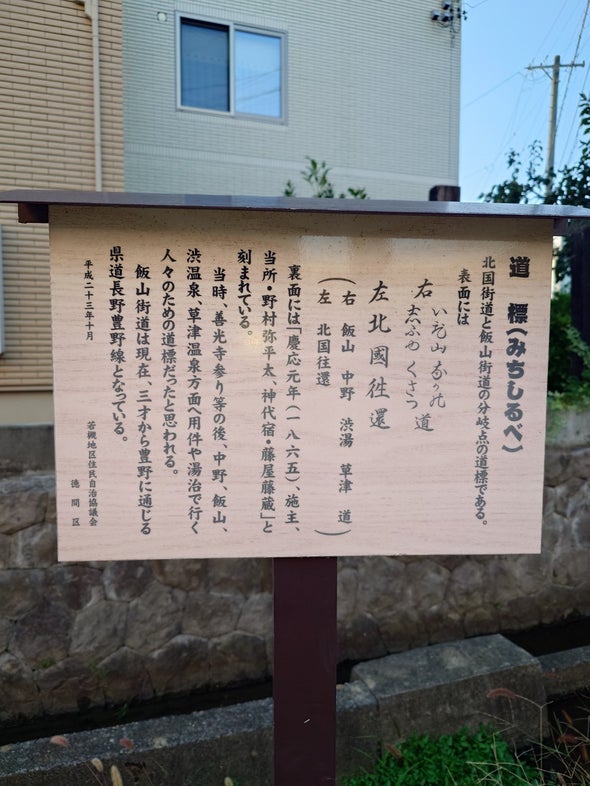 道 標（みちしるべ）
北国街道と飯山街道の分岐点の道標である。
表面には
右 いひ山 なかの 志ふゆ くさつ 道
左 北國徃還
（右 飯山 中野 渋湯 草津 道
左 北国往還 ）
裏面には「慶応元年（一八六五）、施主、
当所・野村弥平太、神代宿・藤屋藤蔵」と
刻まれている。
当時、善光寺参り等の後、中野、飯山、
渋温泉、草津温泉方面へ用件や湯治で行く
人々のための道標だったと思われる。
飯山街道は現在、三才から豊野に通じる
県道長野豊野線となっている。
平成二十三年十月
若槻地区住民自治協議会
徳間区